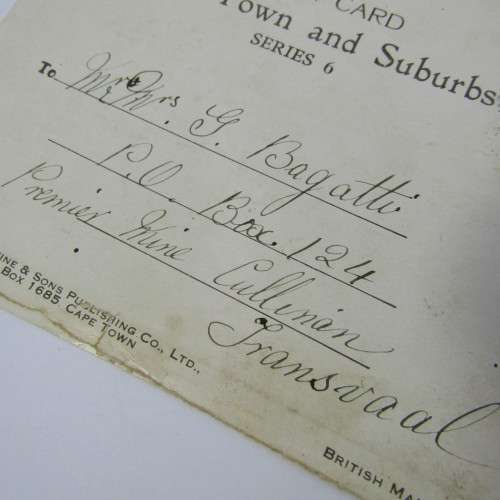 CARD
Town and Suburbs
SERIES 6
To Mr & Mrs G. Bagatti
P.O. Box. 124
Premier Mine Cullinan
Transvaal
& SONS PUBLISHING CO., LTD.,
BOX 1685, CAPE TOWN
BRITISH